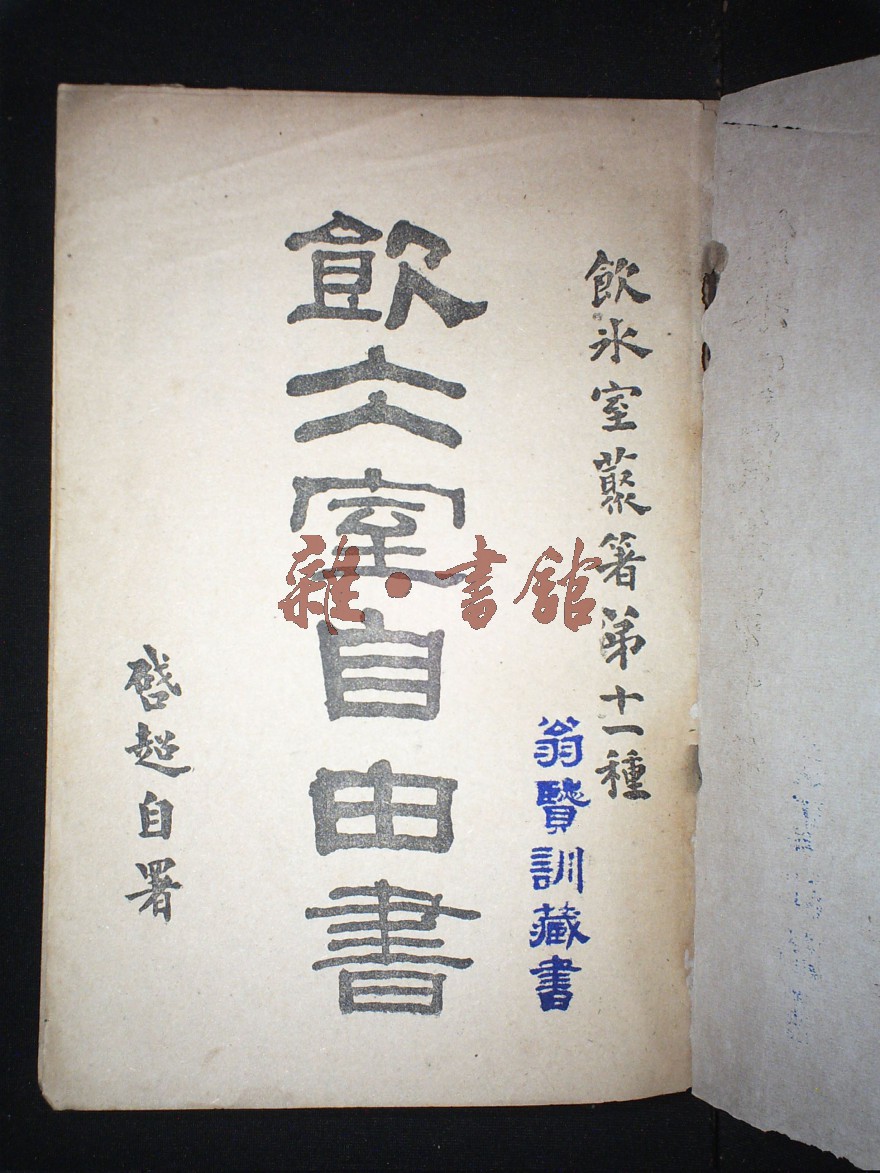 飲氷室藂箸第十一種
翁賢訓藏書
飲仌室自由書
啓超自署
雜·書館